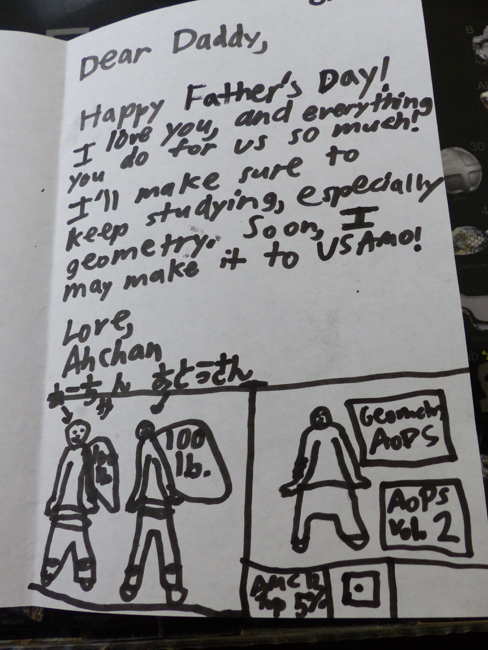 Dear Daddy,
Happy Father's Day!
I love you, and everything
you do for us so much!
I'll make sure to
keep studying, especially
geometry. Soon, I
may make it to USAMO!
Love,
Ahchan
おとーさん
100
lb.
Geometry
AoPS
AoPS
Vol. 2
AMC 12
Top 5%